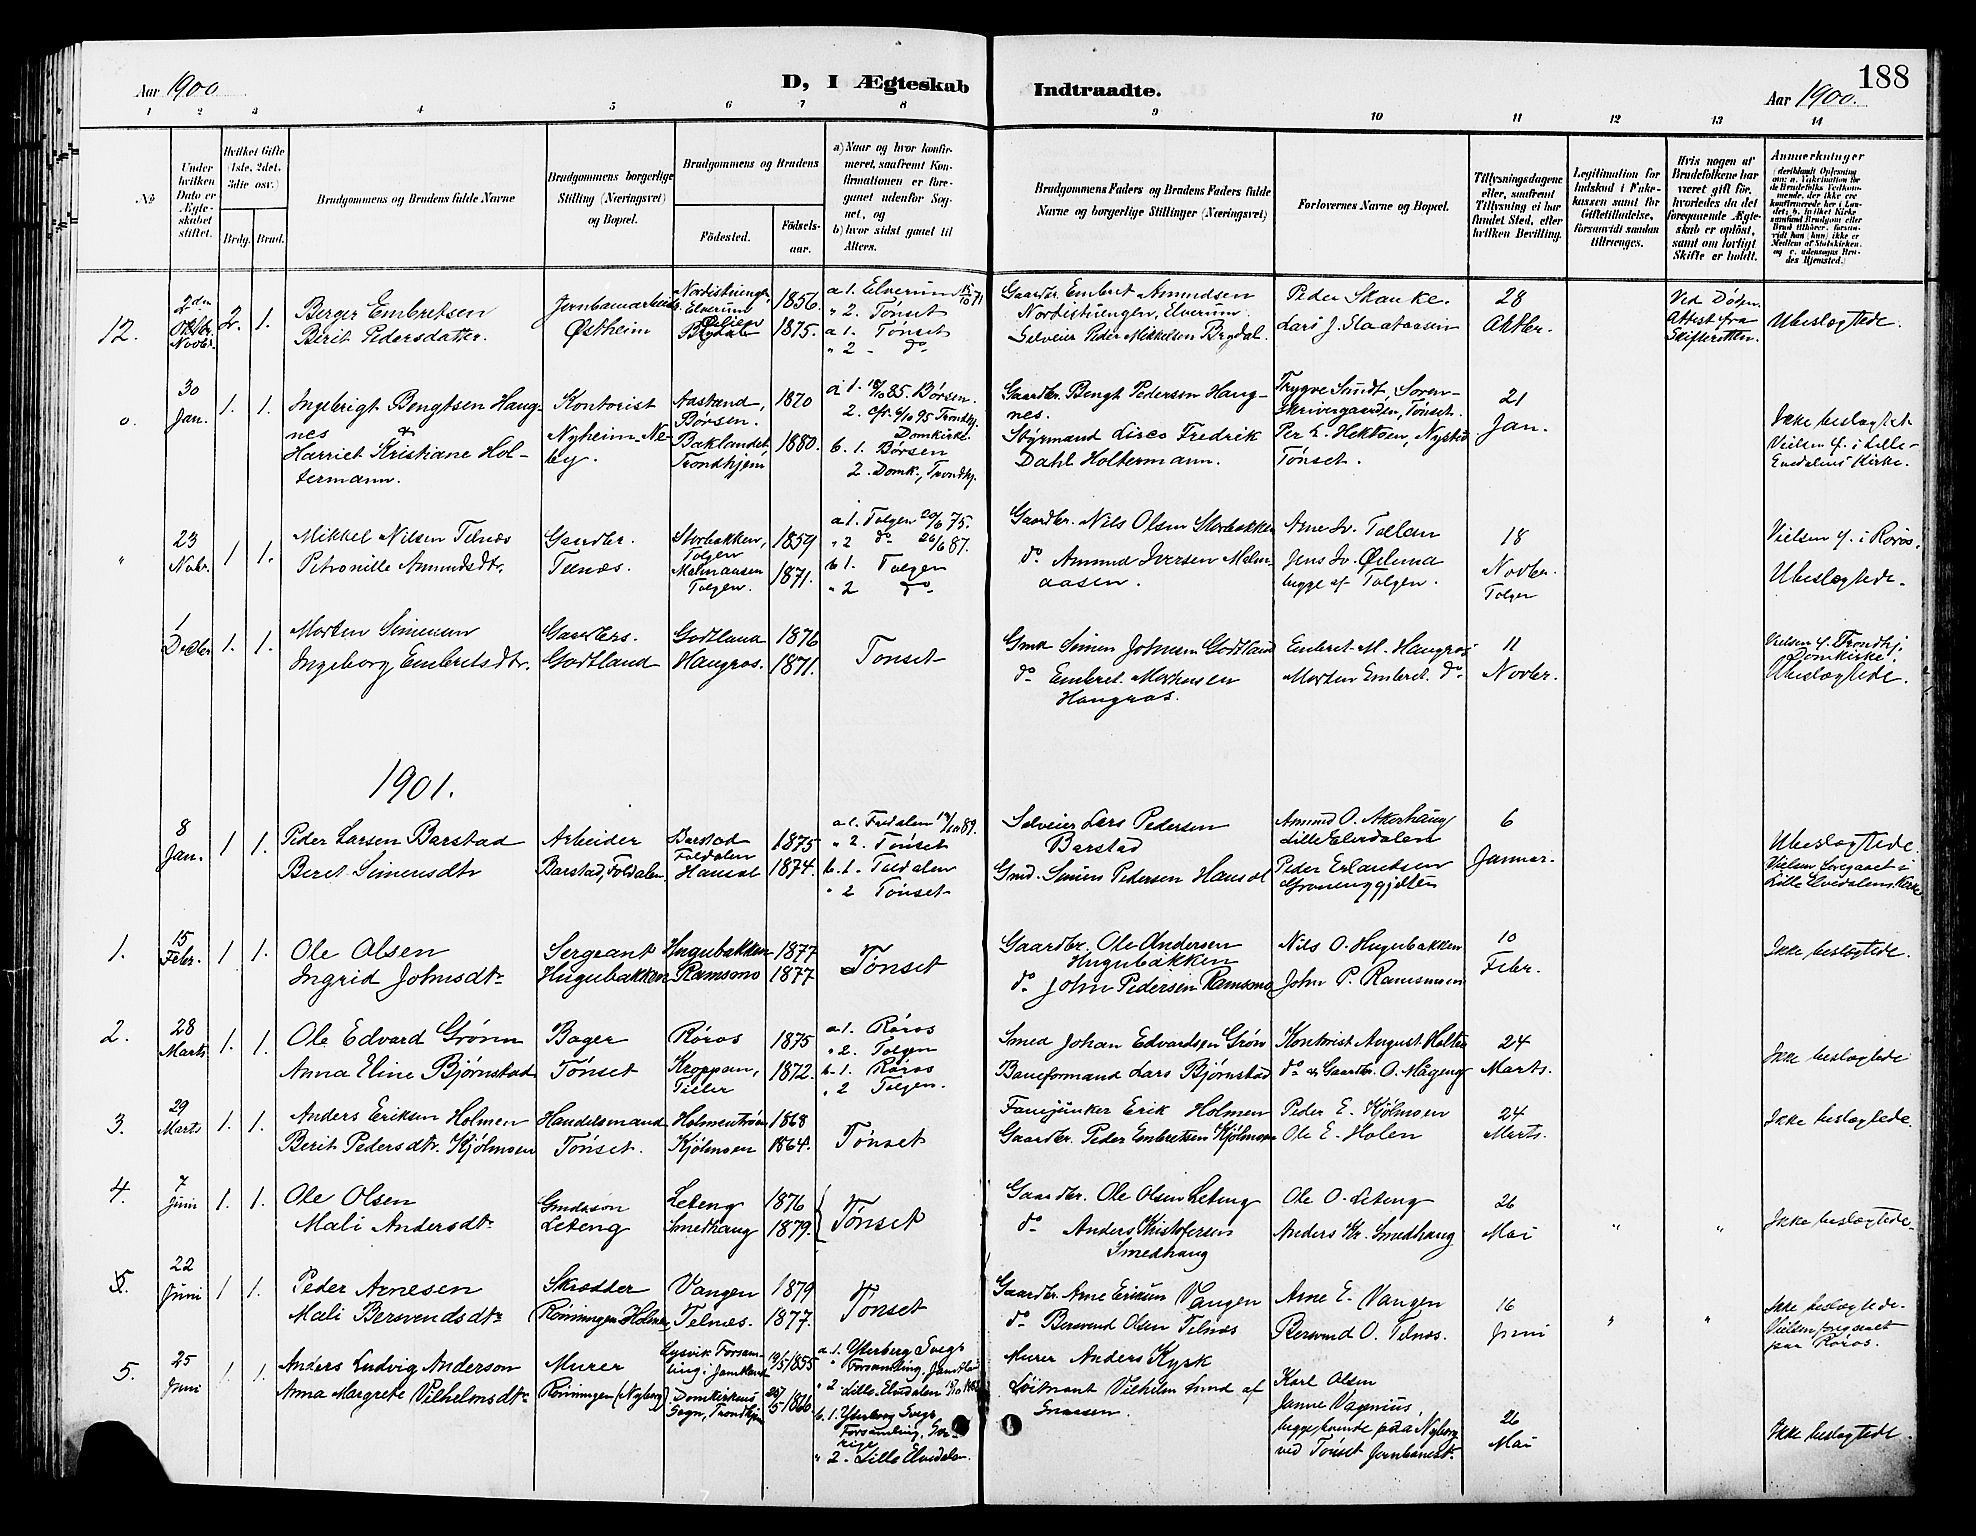 188
Aar 1900
D, I Ægteskab Indtraadte.
Aar 1900.
1 2 3 4 5 6 7 8 9 10 11 12 13 14
No
Under hvilken Dato er Ægteskabet stiftet.
Hvilket Gifte (1ste, 2det, 3die osv.)
Brdg. Brud.
Brudgommens og Brudens fulde Navne
Brudgommens borgerlige Stilling (Næringsvei) og Bopæl.
Brudgommens og Brudens
Fødested.
Fødselsaar.
a) Naar og hvor konfirmeret, saafremt Konfirmationen er foregaaet udenfor Sognet, og
b) hvor sidst gaaet til Alters.
Brudgommens Faders og Brudens Faders fulde Navne og borgerlige Stillinger (Næringsvei)
Forlovernes Navne og Bopæl.
Tillysningsdagene eller, saafremt Tillysning ei har fundet Sted, efter hvilken Bevilling.
Legitimation for Indskud i Enkekassen samt for Giftetilladelse, forsaavidt saadan tiltrænges.
Hvis nogen af Brudefolkene har været gift før, hvorledes da det foregaaende Ægteskab er opløst, samt om lovligt Skifte er holdt.
Anmærkninger
12. 2den Novbr. 2. 1.
Berger Embretsen
Berit Pedersdatter.
Jernbanearbeider
Østheim
Elverum
Brydal
1856.
1875.
a 1. Elverum 71
" 2. Tønset
a 1. Tønset
" 2 - do
Gaardbr. Embret Amundsen
Nordistuengen, Elverum.
Selveier Peder Mikkelsen Brydal.
Peder Skanke.
Lars J. Slaataasen
28
Oktbr.
Ved Døden.
Attest fra
Skifteretten.
Ubeslægtede.
o. 30 Jan. 1. 1.
Ingebrigt Bengtsen Haugnes
&
Harriet Kristiane Holtermann.
Kontorist
Nyheim Neby.
Aastand,
Børsen.
Baklandet,
Trondhjem
1870
1880.
a 1. 85. Børsen.
2. 95 Trondhj.
Domkirke.
b. 1. Børsen
2. Domk., Trondhj.
Gaardbr. Bengt Pedersen Haugnes.
Styrmand Fredrik
Dahl Holtermann.
Trygve Smidt, Sorenskrivergaarden, Tønset.
Per E. Hektoen, Nystu
Tønset.
21
Jan.
Ikke beslægtet
Vielsen f. i Lille-Elvedalens Kirke.
" 23 Novbr. 1 1.
Mikkel Nilsen Telnæs
Petronille Amundsdtr.
Gaardbr.
Telnæs.
Storbakken,
Tolgen
Malmaasen
Tolgen.
1859
1871.
a 1. Tolgen 75.
" 2 do 87.
b 1. Tolgen
" 2 do
Gaardbr. Nils Olsen Storbakken
do Amund Iversen Malmaasen.
Arne Tollan
Jens
begge af Tolgen.
18
Novbr.
Tolgen
Vielsen f. i Røros.
Ubeslægtede.
1 Decbr 1. 1.
Morten Simensen
Ingeborg Embretsdtr.
Gaardbrs.
Godtland
Godtland
Haugros.
1876
1871.
Tønset
Gmd Simen Johnsen Godtland
do Embret Mortensen
Haugros.
Embret M. Haugros
Morten Embret. do
11
Novbr.
Vielsen f. Trondhj.
Domkirke.
Ubeslægtede.
1901.
8 Jan. 1 1.
Peder Larsen Barstad
Beret Simensdtr
Arbeider
Barstad, Foldalen.
Barstad
Foldalen
Hausol
1875
1874.
a 1. Foldalen 89.
" 2. Tønset
b. 1. Foldalen
" 2 Tønset
Selveier Lars Pedersen
Barstad
Gmd. Simen Pedersen Hausol
Amund O. Akerhaug
Lille Elvedalen
Peder Erlandsen
6
Januar.
Ubeslægtede.
Vielsen foregaaet i
Lille Elvedalens Kirke
1. 15 Febr. 1 1.
Ole Olsen
Ingrid Johnsdtr
Sergeant
Hugubakken
Hugubakken
Ramsmo
1877
1877
Tønset
Gaardbr. Ole Andersen
Hugubakken
do John Pedersen Ramsmo
Nils O. Hugubakken
John P. Ramsmoen
10
Febr.
Ikke beslægtede.
2. 28 Marts 1. 1.
Ole Edvard Grønn
Anna Eline Bjørnstad
Bager
Tønset
Røros
Kroppan,
Tiller
1875
1872.
a 1. Røros
" 2. Tolgen
b 1. Røros
" 2 Tolgen.
Smed Johan Edvardsen Grøn
Baneformand Lars Bjørnstad
Kontorist August Holter
do & Gaardbr. O. Mageng
24
Marts.
Ikke beslægtede
3. 29 Marts 1. 1.
Anders Eriksen Holmen
Berit Pedersdtr. Kjølmoen
Handelsmand
Tønset.
Holmentrøen
Kjølmoen
1868
1864.
Tønset
Fanejunker Erik Holmen
Gaardbr. Peder Embretsen Kjølmoen
Peder E. Kjølmoen
Ole E. Holen
24
Marts.
Ikke beslægtede.
4. 7 Juni 1. 1.
Ole Olsen
Mali Andersdtr
Gmdssøn
Leteng
Leteng
Smedhaug
1876
1879.
Tønset
Gaardbr. Ole Olsen Leteng
do Anders Kristofersen
Smedhaug
Ole O. Leteng
Anders Kr. Smedhaug
26
Mai
" "
Ikke beslægtede.
5. 22 Juni 1 1.
Peder Arnesen
Mali Bersvendsdtr
Skrædder
Rønningen Holmen
Vangen
Telnes.
1879
1877.
Tønset
Gaardbr. Arne Eriksen Vangen
do Bersvend Olsen Telnæs
Arne E. Vangen
Bersvend O. Telnæs.
16
Juni
" "
Ikke beslægtede.
Vielsen foregaaet
paa Røros.
5. 25 Juni 1 1.
Anders Ludvig Anderson
Anna Margrete Vilhelmsdtr
Murer
Rønningen (Nyberg)
Lysvik Forsamling i Jemtland
Domkirkens
Sogn, Trondhjem
1855
1860.
a. 1. Ytterberg Svegs
Forsamling, Jemtland
" 2 Lille Elvedalen
b. 1. Ytterberg Svegs
Forsamling, Sverige
" 2 - Lille Elvedalen.
Murer Anders Kysk
Løitnant Vilhelm Lund af
Snaasen.
Karl Olsen
Janne Vagenius,
begge boende paa Nyberg
ved Tønset Jernbanest.
26
Mai
Ikke beslægtede.